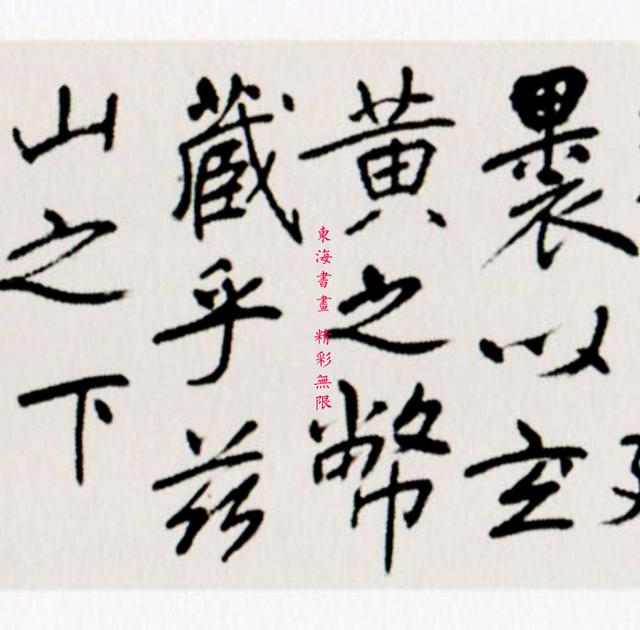 裹以玄
黄之幣
藏乎兹
山之下
東海書畫 精彩無限